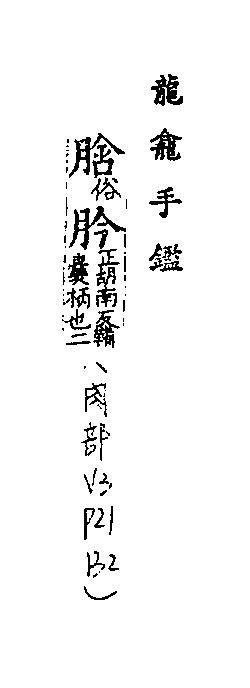 龍龕手鑑
俗肣正胡南反鞴囊柄也二（肉部V3P21B2）